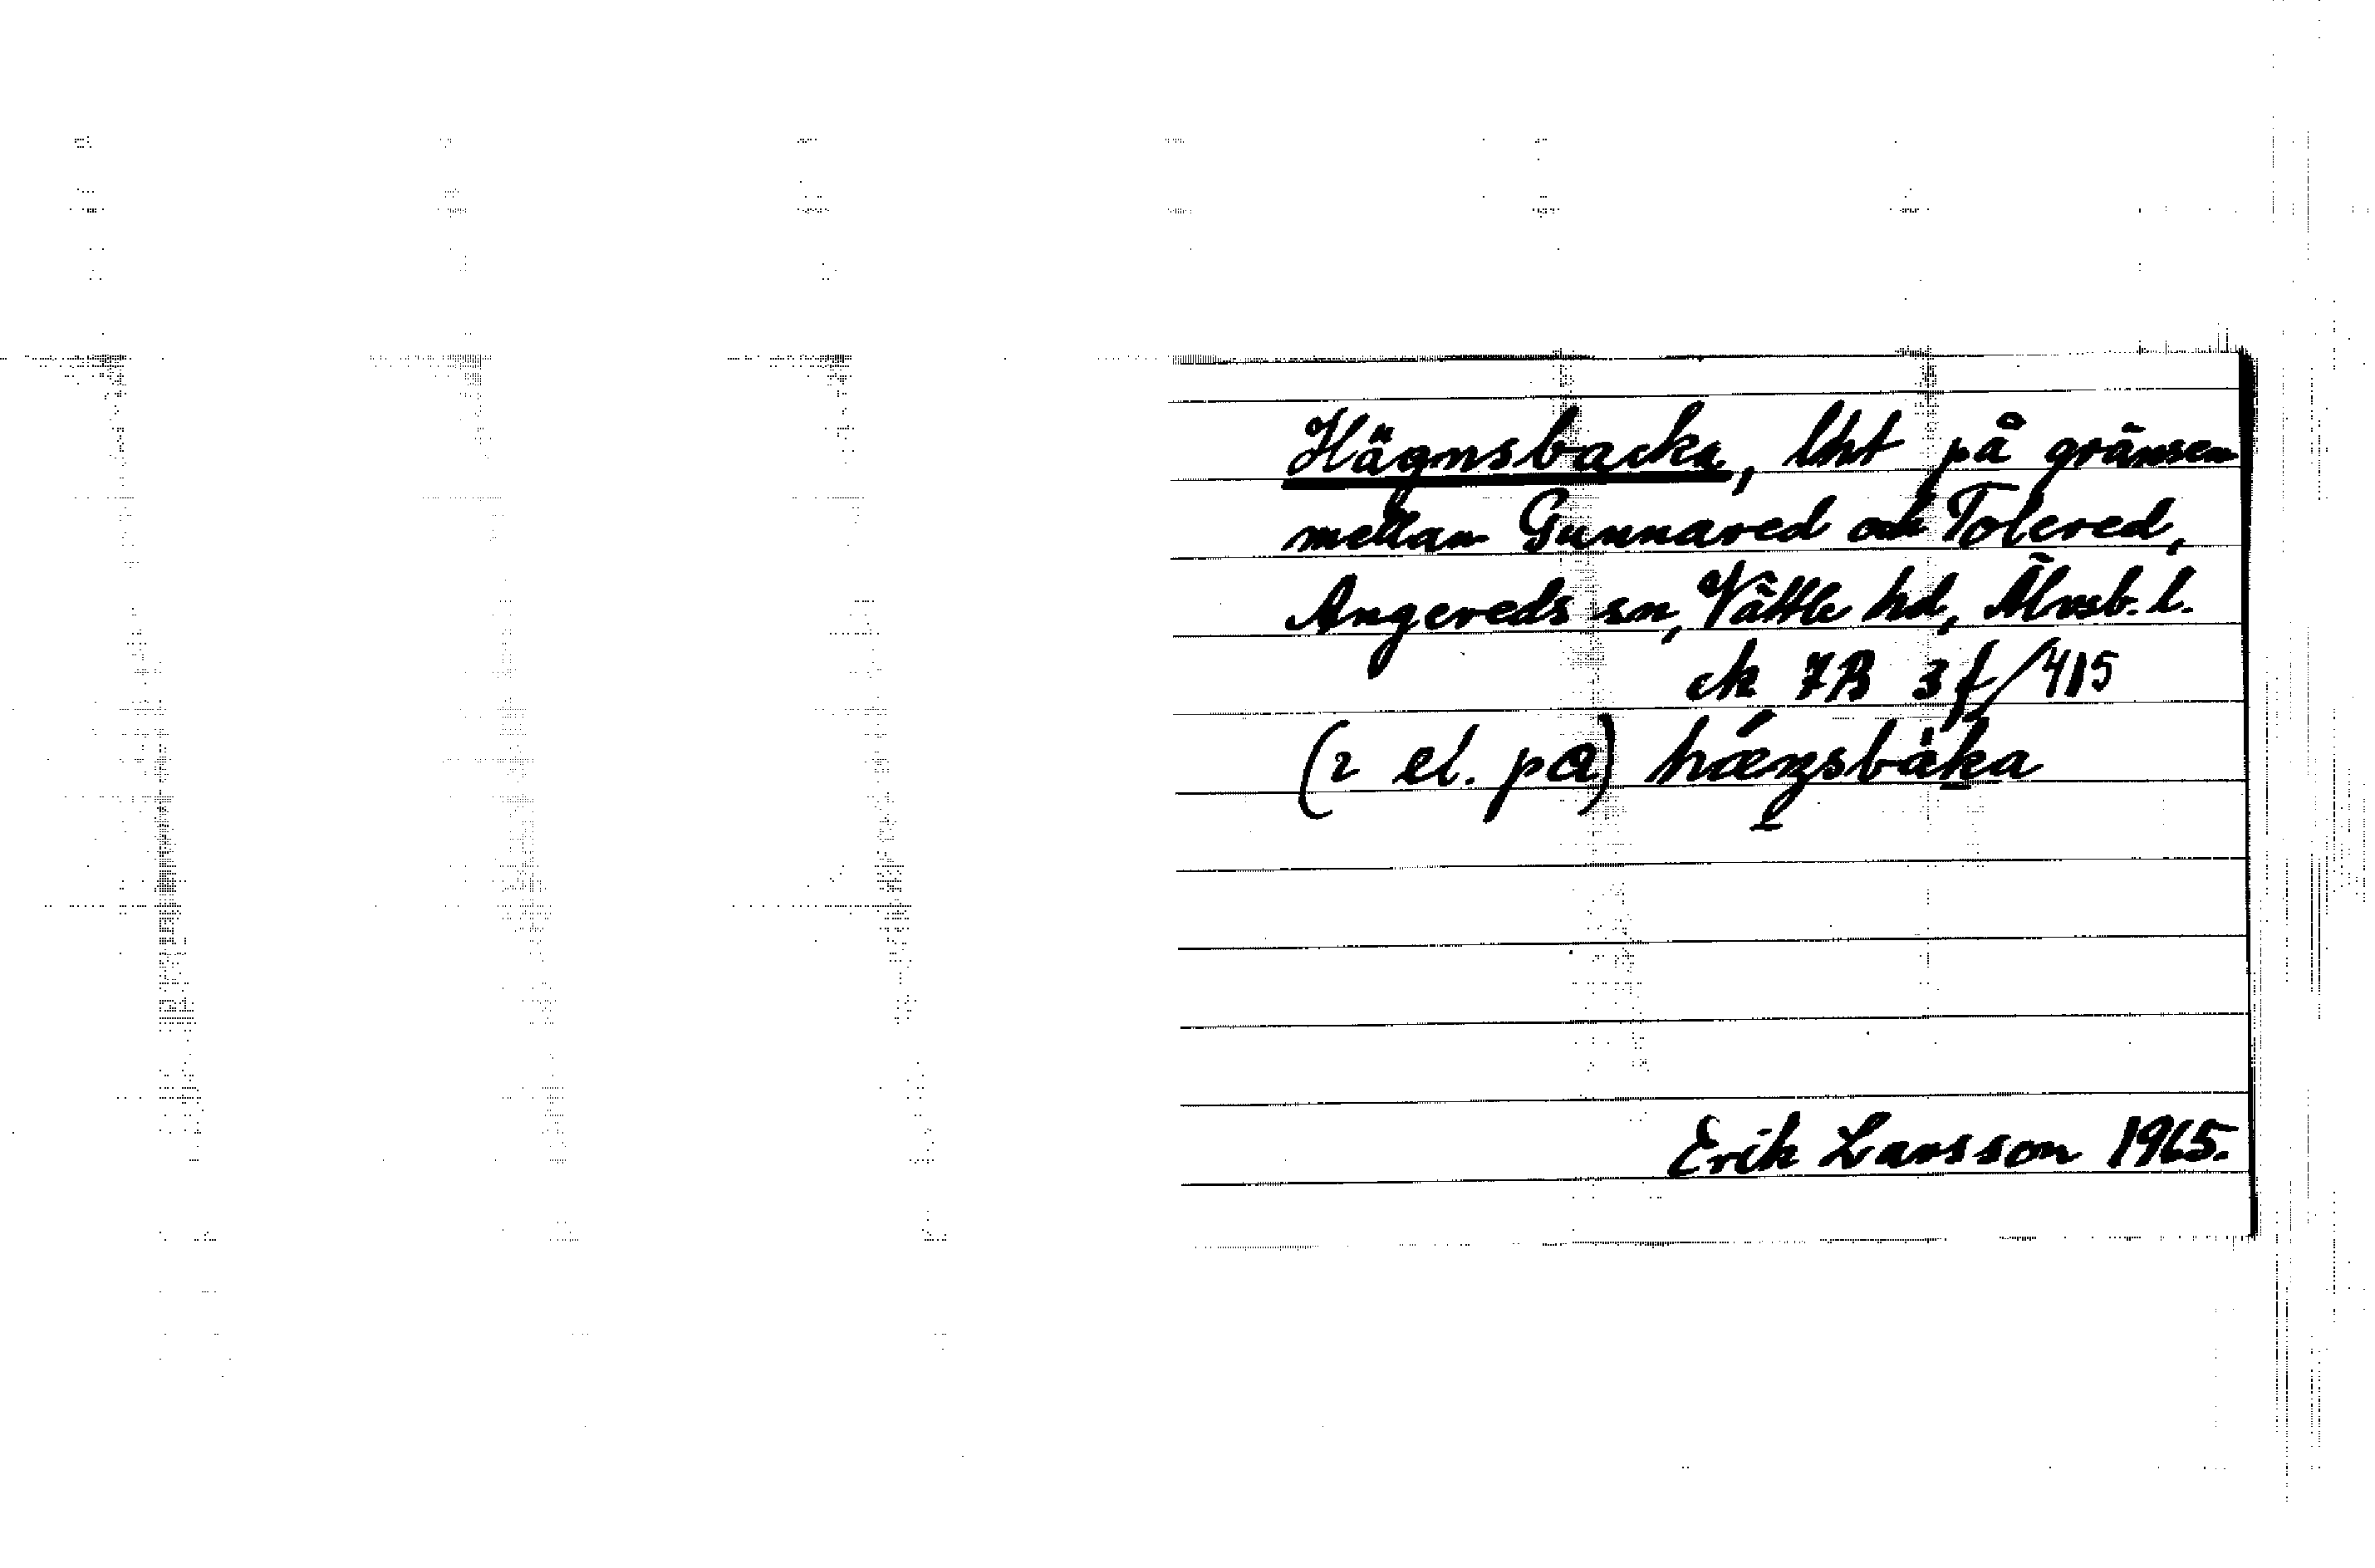 Hägnsbacka, lht på gränsen
mellan Gunnared och Tolered,
Angereds sn, Vättle hd, Älvsb. l.
ek 7B 3f/415
(ı el. pɑ)
Erik Larsson 1965.